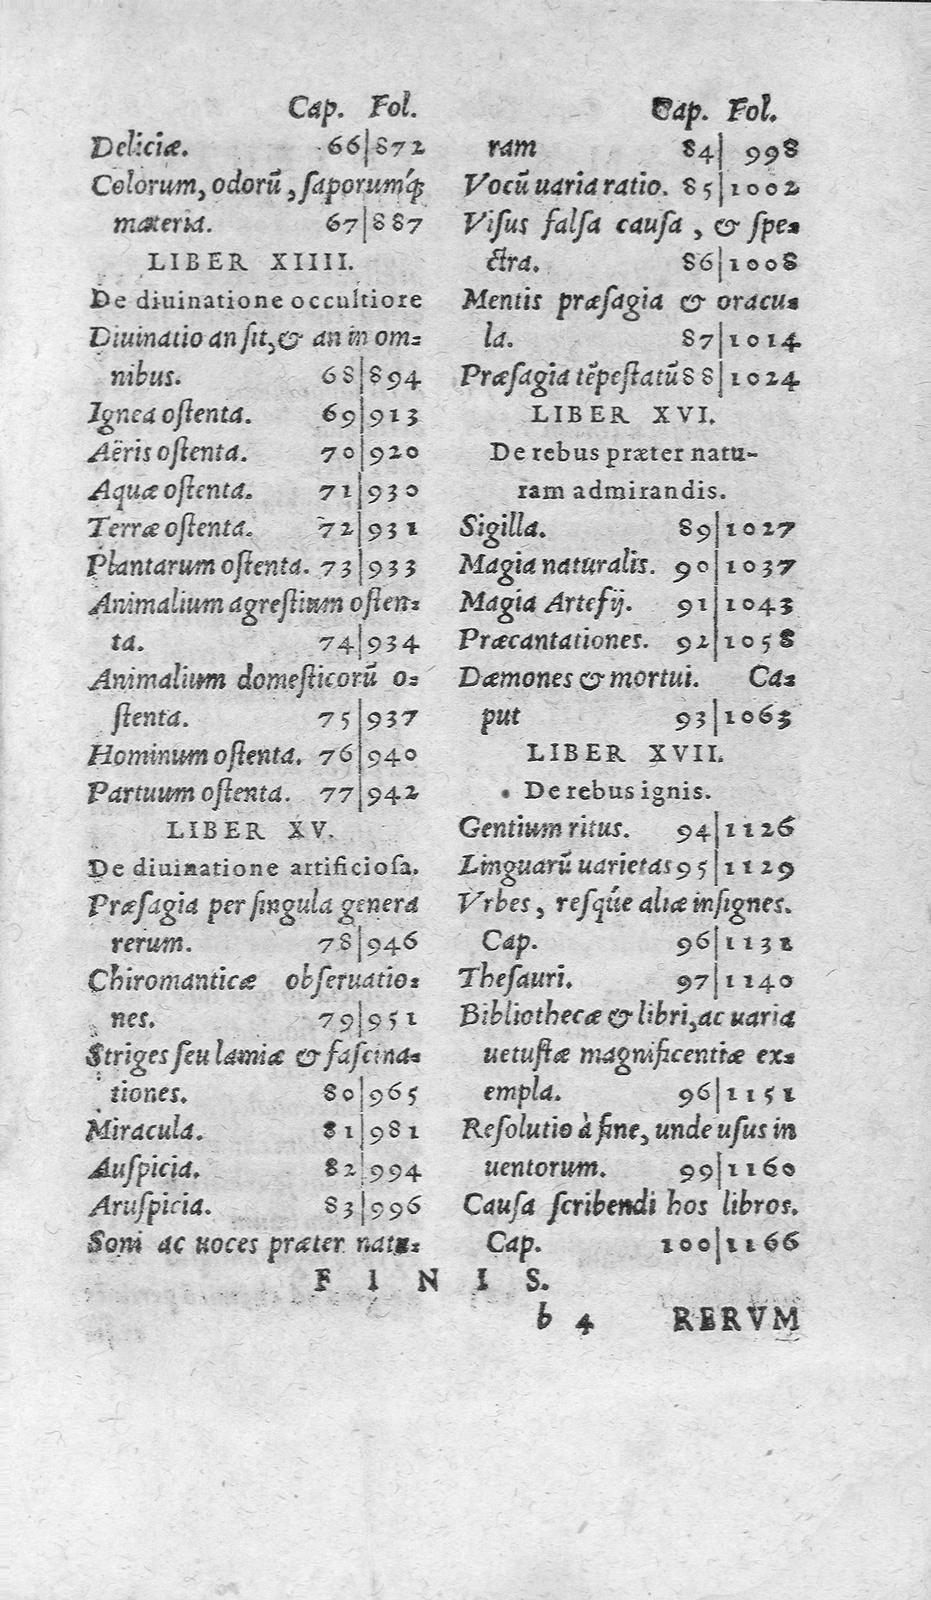 Cap. Fol.
Deliciæ. 66|872
Colorum, odorũ, ſaporumq́;
materia. 67|887
LIBER XIIII.
De diuinatione occultiore
Diuinatio an ſit, & an in om=
nibus. 68|894
Ignea oſtenta. 69|913
Aëris oſtenta. 70|920
Aquæ oſtenta. 71|930
Terræ oſtenta. 72|931
Plantarum oſtenta. 73|933
Animalium agreſtium oſten=
ta. 74|934
Animalium domeſticorũ o=
ſtenta. 75|937
Hominum oſtenta. 76|940
Partuum oſtenta. 77|942
LIBER XV.
De diuinatione artificioſa.
Præſagia per ſingula genera
rerum. 78|946
Chiromanticæ obſeruatio=
nes. 79|951
Striges ſeu lamiæ & faſcina=
tiones. 80|965
Miracula. 81|981
Auſpicia. 82|994
Aruſpicia. 83|996
Soni ac uoces præter natu=
Cap. Fol.
ram 84|998
Vocũ uaria ratio. 85|1002
Viſus falſa cauſa, & ſpe=
ctra. 86|1008
Mentis præſagia & oracu=
la. 87|1014
Præſagia tẽpeſtatũ 88|1024
LIBER XVI.
De rebus præter natu-
ram admirandis.
Sigilla. 89|1027
Magia naturalis. 90|1037
Magia Artefij. 91|1043
Præcantationes. 92|1058
Dæmones & mortui. Ca=
put 93|1063
LIBER XVII.
De rebus ignis.
Gentium ritus. 94|1126
Linguarũ uarietas 95|1129
Vrbes, reſq́ue aliæ inſignes.
Cap. 96|1131
Theſauri. 97|1140
Bibliothecæ & libri, ac uaria
uetuſtæ magnificentiæ ex=
empla. 96|1151
Reſolutio à fine, unde uſus in
uentorum. 99|1160
Cauſa ſcribendi hos libros.
Cap. 100|1166
FINIS.
b 4 RERVM